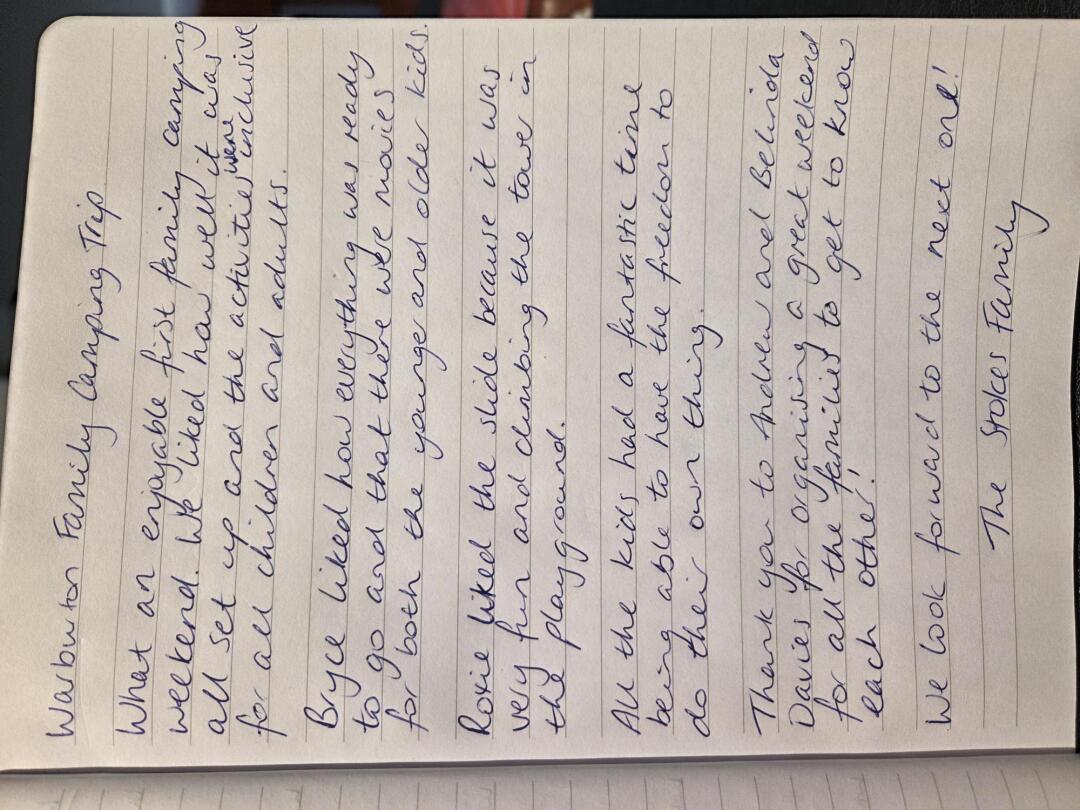 Warburton Family Camping Trip
What an enjoyable first family camping
weekend. We liked how well it was
all set up and the activities were inclusive
for all children and adults.
Bryce liked how everything was ready
to go and that there were movies
for both the younge and older kids.
Roxie liked the slide because it was
very fun and climbing the tower in
the playground.
All the kids had a fantastic time
being able to have the freedom to
do their own thing.
Thank you to Andrew and Belinda
Davies for organising a great weekend
for all the families to get to know
each other!
We look forward to the next one!
The Stokes Family